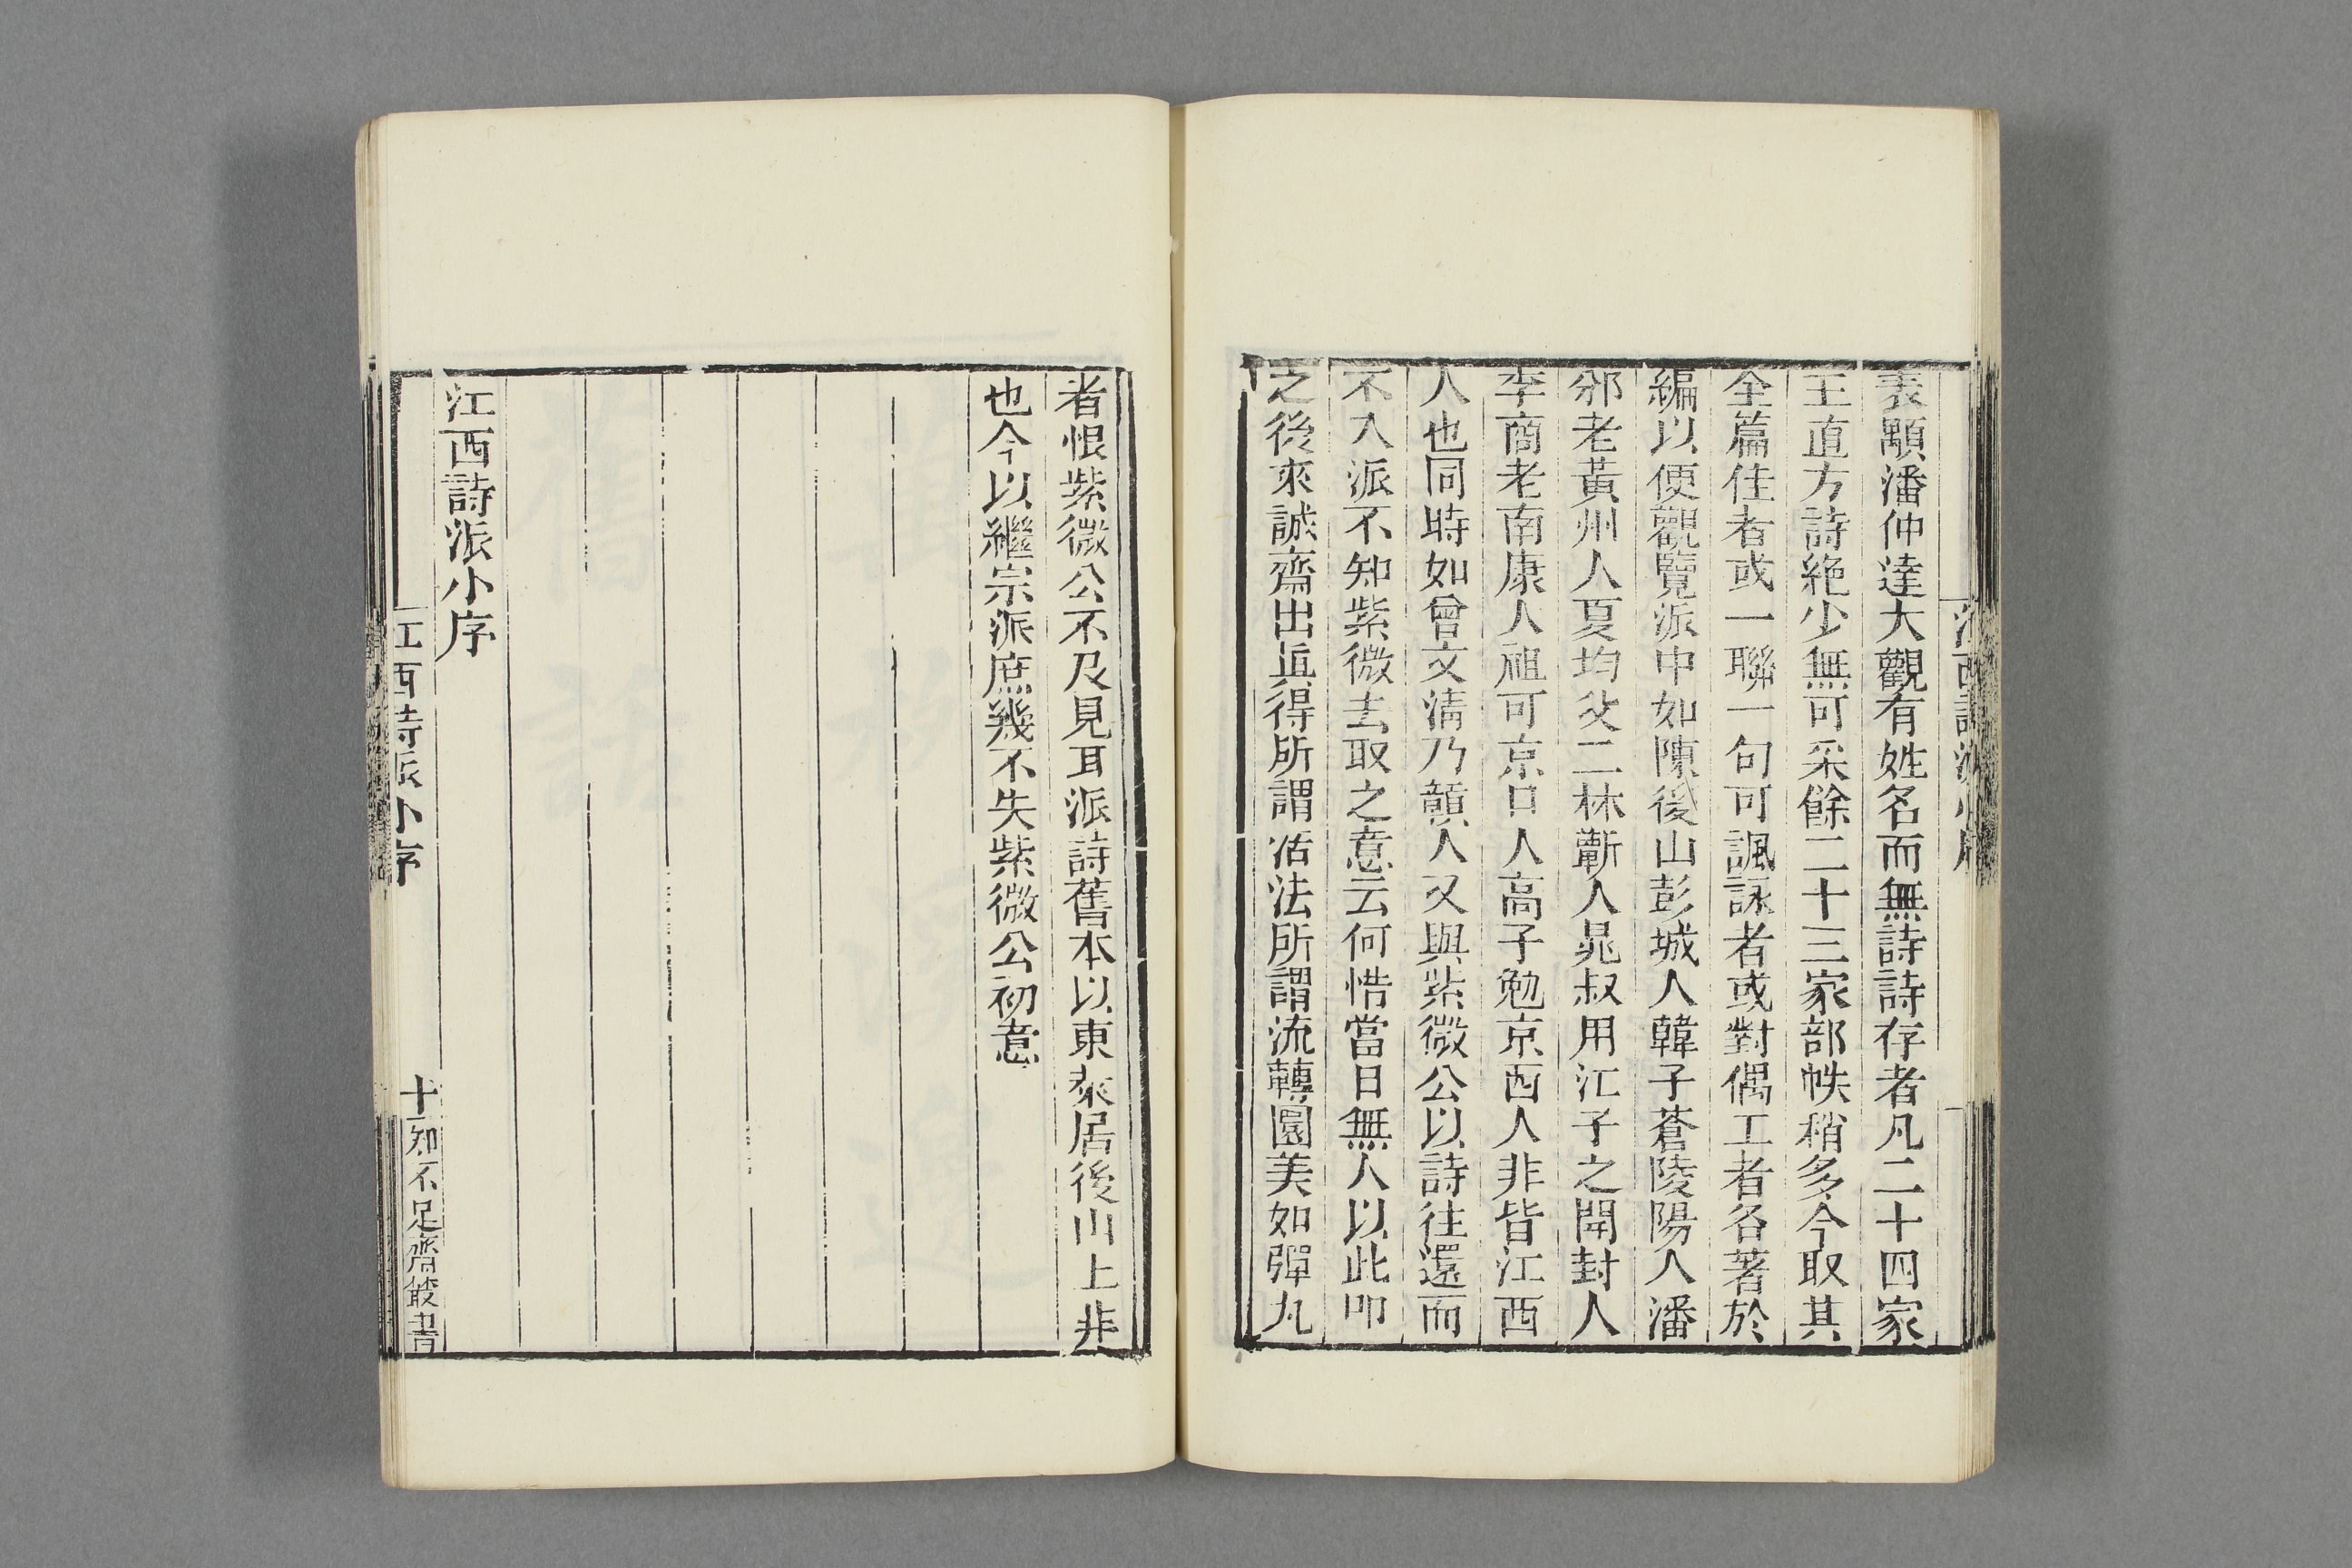 江西詩派小序
表顒潘仲達大觀有姓名而無詩詩存者凡二十四家
王直方詩絶少無可采餘二十三家部帙稍多今取其
全篇佳者或一聯一句可諷詠者或對偶工者各著於
編以便觀覽派中如陳後山彭城人韓子蒼陵陽人潘
邠老黃州人夏均父二林蘄人晁叔用江子之開封人
李商老南康人祖可京口人高子勉京西人非皆江西
人也同時如曾文清乃贛人又與紫微公以詩往還而
不入派不知紫微去取之意云何惜當日無人以此叩
之後來誠齋出真得所謂活法所謂流轉圜美如彈丸
者恨紫微公不及見耳派詩舊本以東萊居後山上非
也今以繼宗派庶幾不失紫微公初意
江西詩派小序
江西詩派小序
十
知不足齋叢書